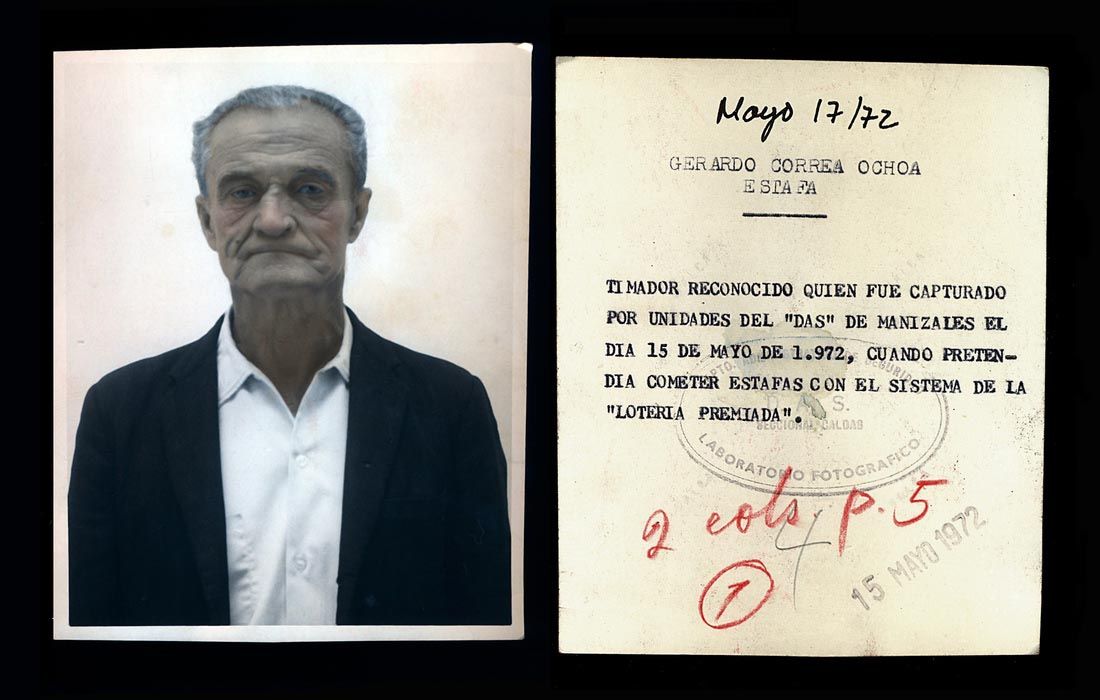 Mayo 17/72
GERARDO CORREA OCHOA
ESTAFA
TIMADOR RECONOCIDO QUIEN FUE CAPTURADO
POR UNIDADES DEL "DAS" DE MANIZALES EL
DIA 15 DE MAYO DE 1.972, CUANDO PRETEN-
DIA COMETER ESTAFAS CON EL SISTEMA DE LA
"LOTERIA PREMIADA".
D. A. S.
SECCIONAL CALDAS
LABORATORIO FOTOGRAFICO
2 cols p. 5
4
1
15 MAYO 1972